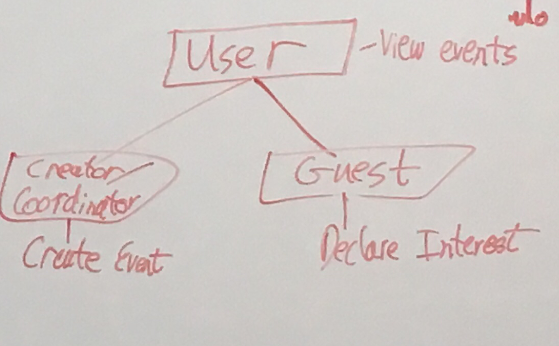 User
-View events
Creator/
Coordinator
Guest
Create Event
Declare Interest